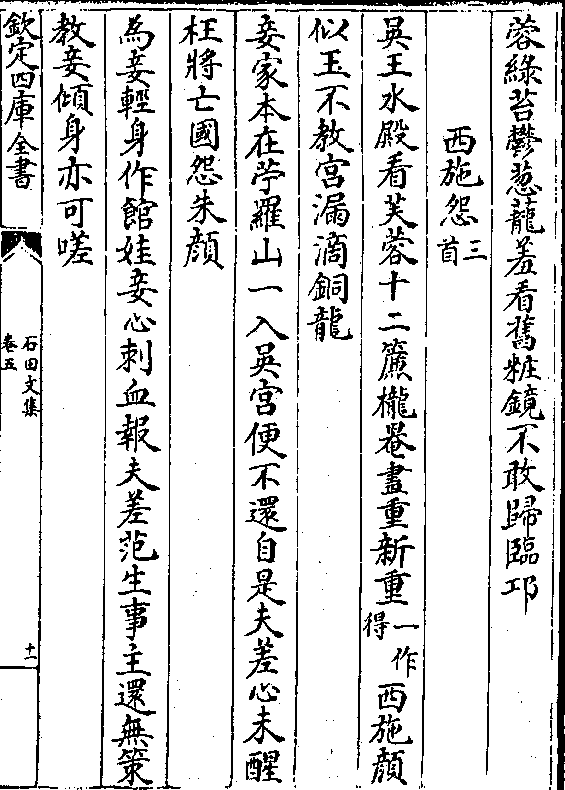 蓉綠苔鬱葱蘢羞看舊粧鏡不敢歸臨邛
西施怨三首
吳王水殿看芙蓉十二簾櫳晝重新重一作得西施顔
似玉不教宮漏滴銅龍
妾家本在苧羅山一入吳宮便不還自是夫差心未醒
枉將亡國怨朱顔
為妾輕身作館娃妾心刺血報夫差范生事主還無策
教妾傾身亦可嗟
欽定四庫全書
石田文集
卷五
十一